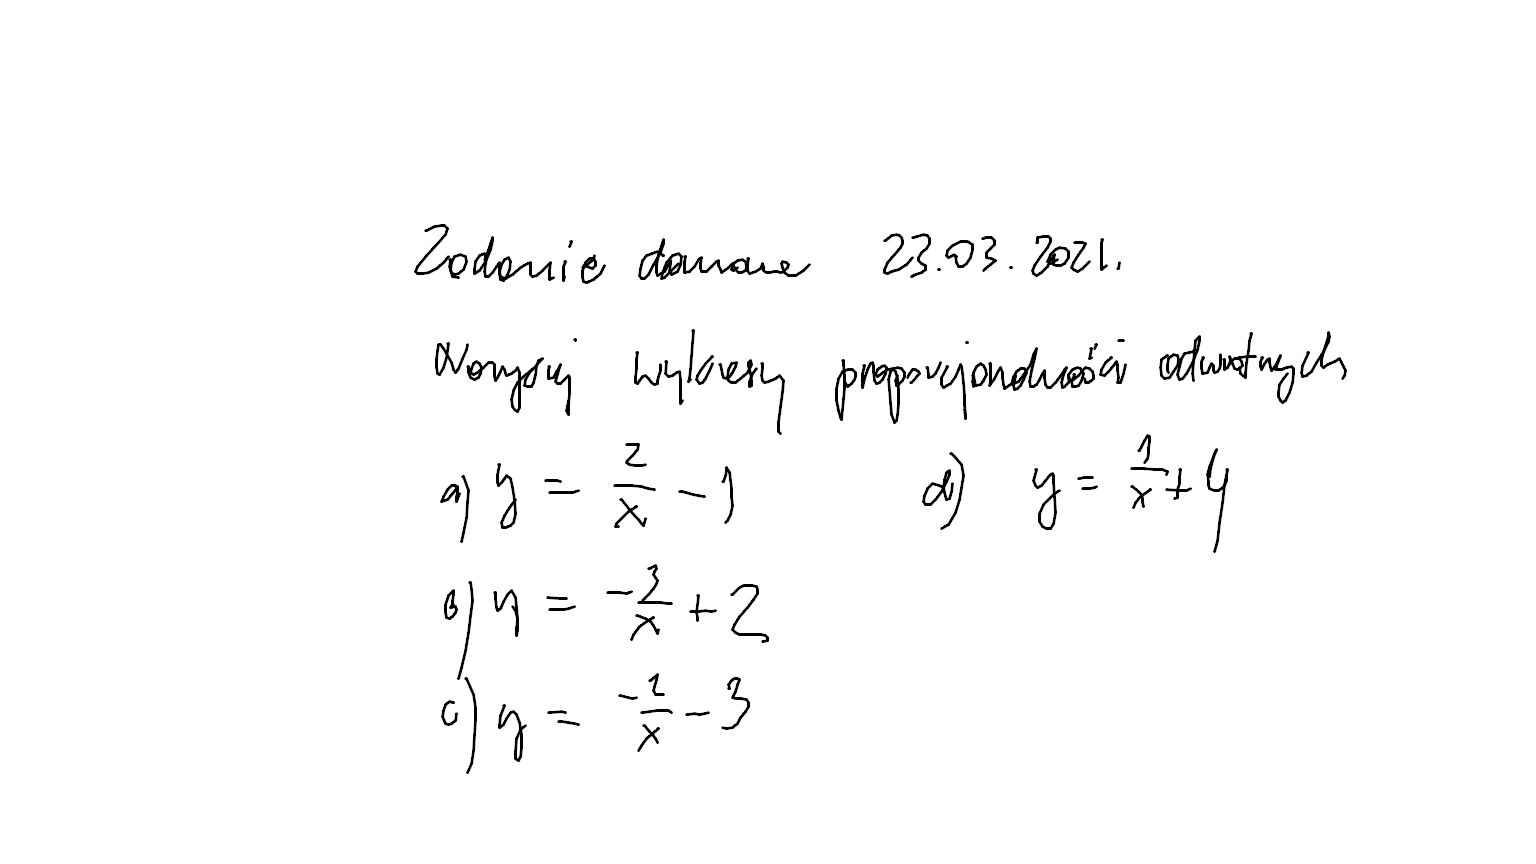 Zadanie domowe 23.03.2021.
Narysuj wykresy proporcjonalności odwrotnych
a) y = 2/x - 1
d) y = 1/x + 4
b) y = -3/x + 2
c) y = -1/x - 3